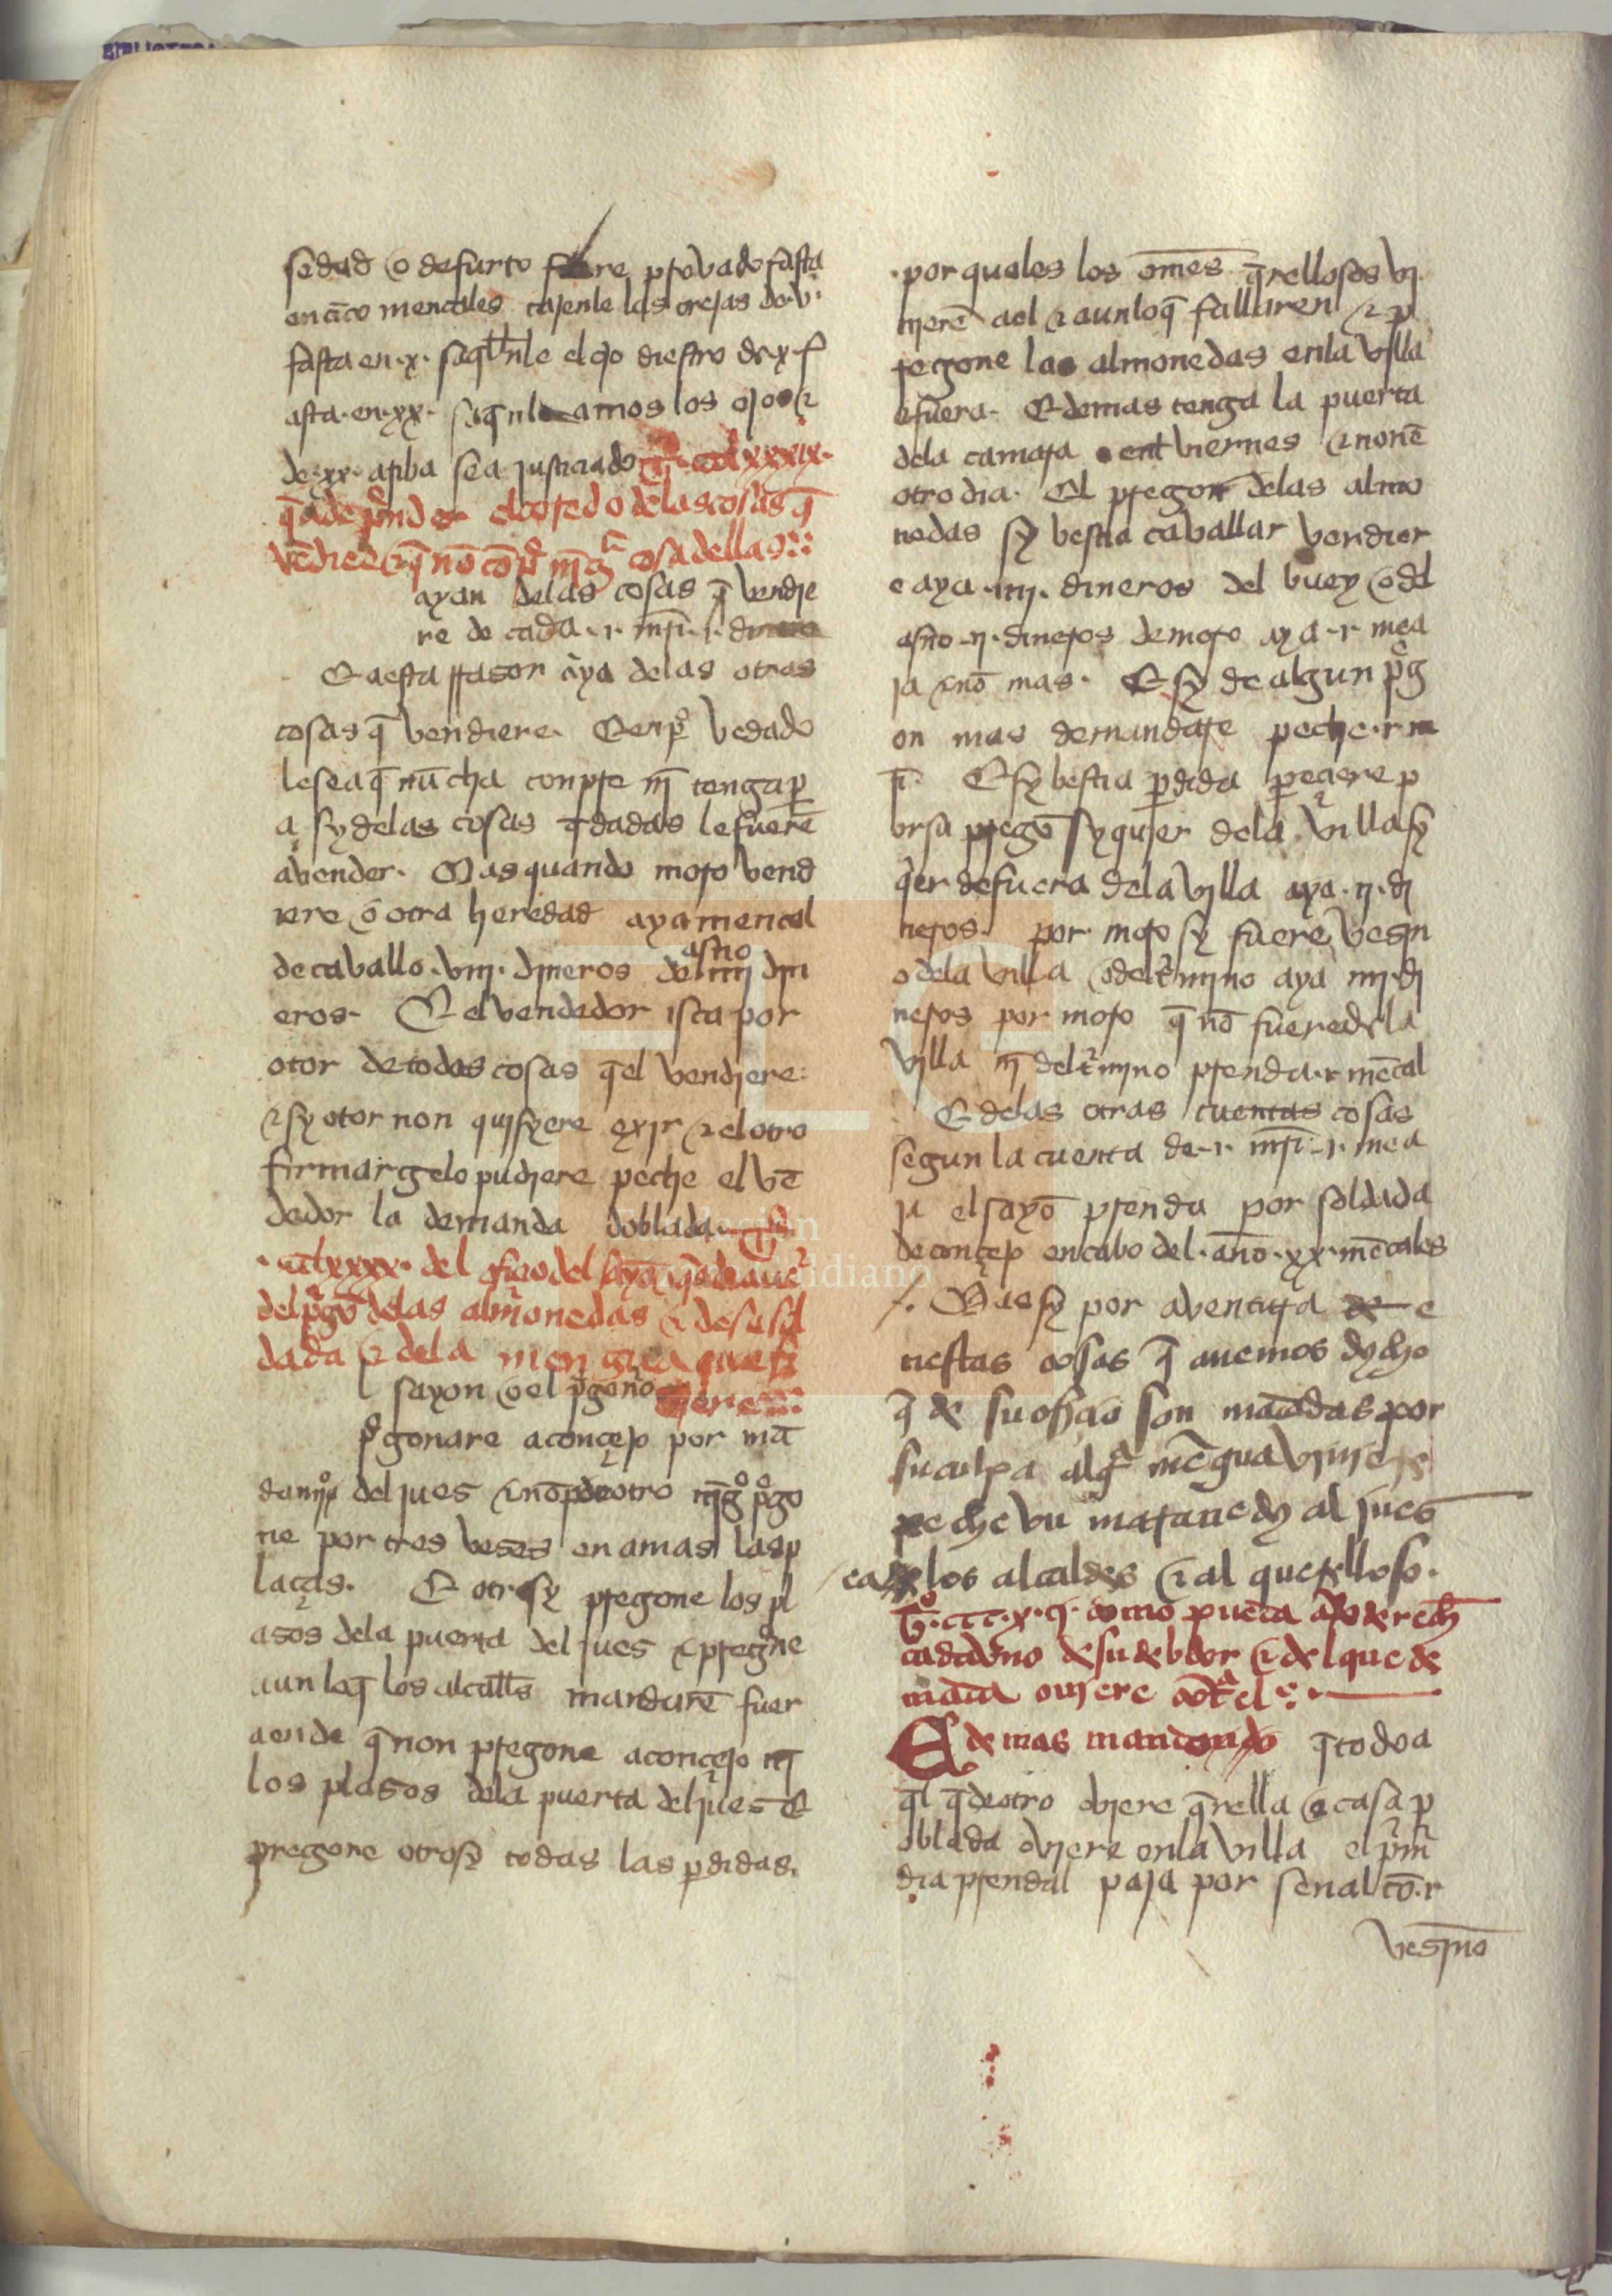 sedad o de furto fuere prouado fasta
en çico mencales tajenle las orejas de .v.
fasta en .x. saqueñle el ojo diestro de .x. f
asta .en .xx. saqñle amos los ojos τ
de .xx. arriba sea justiciado
q̄ a de p̄nder el corredor delas cosas q̄
vēdiere τ q̄ nō cōpre cosa dellas
ayan delas cosas q̄ vendie
re de cada .i. mr̄i .i. dinero
E a esta rrason aya delas otras
cosas q̄ vendiere. E enpo vedado
le sea q̄ nūcha conpre nj̄ tenga p
a sy delas cosas q̄ dadas le fuerē
a vender. Mas quando moro vend
iere o otra heredad aya mencal
de caballo .viij. djneros del asno iiij djn
eros. E el vendedor ista por
otor de todas cosas q̄el vendiere:
τ sy otor non quisyere exjr τ el otro
firmargelo pudiere peche el vē
dedor la demanda doblada.
.cclxxx. del ofiçio del sayō
del p̄gō delas almonedas τ de su sol
dada τ dela mengua que fi
sayon o el p̄gonero
ziere
p̄gonare a conçejo por mā
damjo del jues τ nō por de otro p̄go
ne por tres veses en amas las p
laças. E otrosy pregone los pl
asos dela puerta del jues τ pregone
aun loq̄ los alcalls mandarē fuer
a ende q̄ non pregone a conçejo nj̄
los plasos dela puerta del jues E
pregone otrosy todas las pdidas.
por quales los om̄es q̄rellosos vj
njerē a el τ aun loq̄ fallaren τ p
regone las almonedas enla villa
e fuera. E demas tenga la puerta
dela camara en el viernes τ non ē
otro dia. El pregon delas almo
nedas sy bestia cavallar vendier
e aya .iiij. dineros del buey o del
asno .ij. dineros de moro aya .i. mea
ja τ nō mas. E sy de algun p̄g
on mas demandare peche .i. m
r̄i. E sy bestia pdida pareçiere p
or sa pregō sy quier dela villa sy
q̄er de fuera dela villa aya .ij. di
neros. por moro sy fuere vesjn
o dela villa o del t̄mjno aya iiij. di
neros por moro q̄ nō fuere dela
villa nj̄ del t̄mjno prenda .i. mēcal
E delas otras cuentas cosas
segun la cuenta de .i. mr̄i .i. mea
ja el sayō prenda por soldada
de conçejo en cabo del .año .xx. mēcales
/. Mas sy por aventura de e
nestas cosas q̄ auemos dycho
q̄ de su ofiçio son mādadas por
su culpa algª mēgua viniere
peche vn marauedy al jues
e a los alcaldes τ al querelloso.
como pueda
cada vno de su debdor τ del que de
māda oujere cōtª el
E de mas mandando q̄ todo a
q̄l q̄ de otro ovjere q̄rella e casa p
oblada ovjere enla villa el p̄m
dia prendal paja por señal cō .i.
vesjno